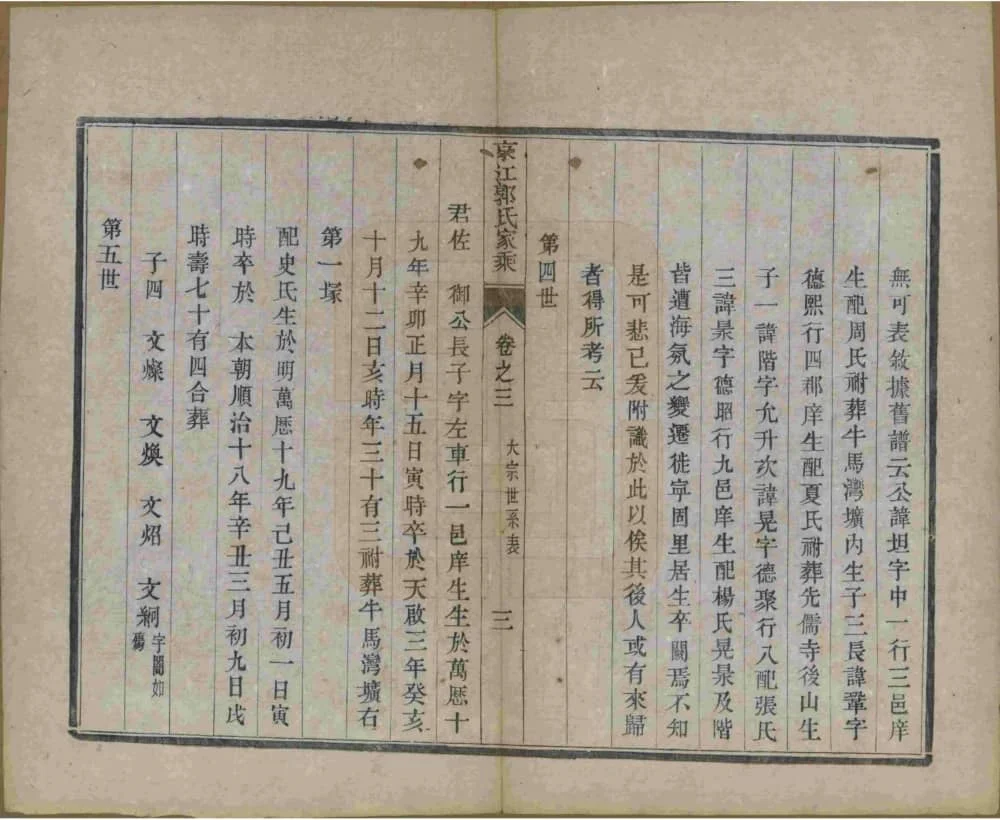 無可表敘據舊譜云公諱坦字中一行三邑庠
生配周氏祔葬牛馬灣壙內生子三長諱鞏字
德熙行四郡庠生配夏氏祔葬先儒寺後山生
子一諱階字允升次諱晃字德聚行八配張氏
三諱景字德昭行九邑庠生配楊氏晃景及階
皆遭海氛之變遷徙寧固里居生卒闕焉不知
是可悲已爰附識於此以俟其後人或有來歸
者得所考云
第四世
京江郭氏家乘 卷之三 大宗世系表 三
君佐 御公長子字左車行一邑庠生生於萬歷十
九年辛卯正月十五日寅時卒於天啟三年癸亥
十月十二日亥時年三十有三祔葬牛馬灣壙右
第一塚
配史氏生於明萬歷十九年己丑五月初一日寅
時卒於 本朝順治十八年辛丑三月初九日戌
時壽七十有四合葬
子四 文燦 文煥 文炤 文綱 字闇如 殤
第五世